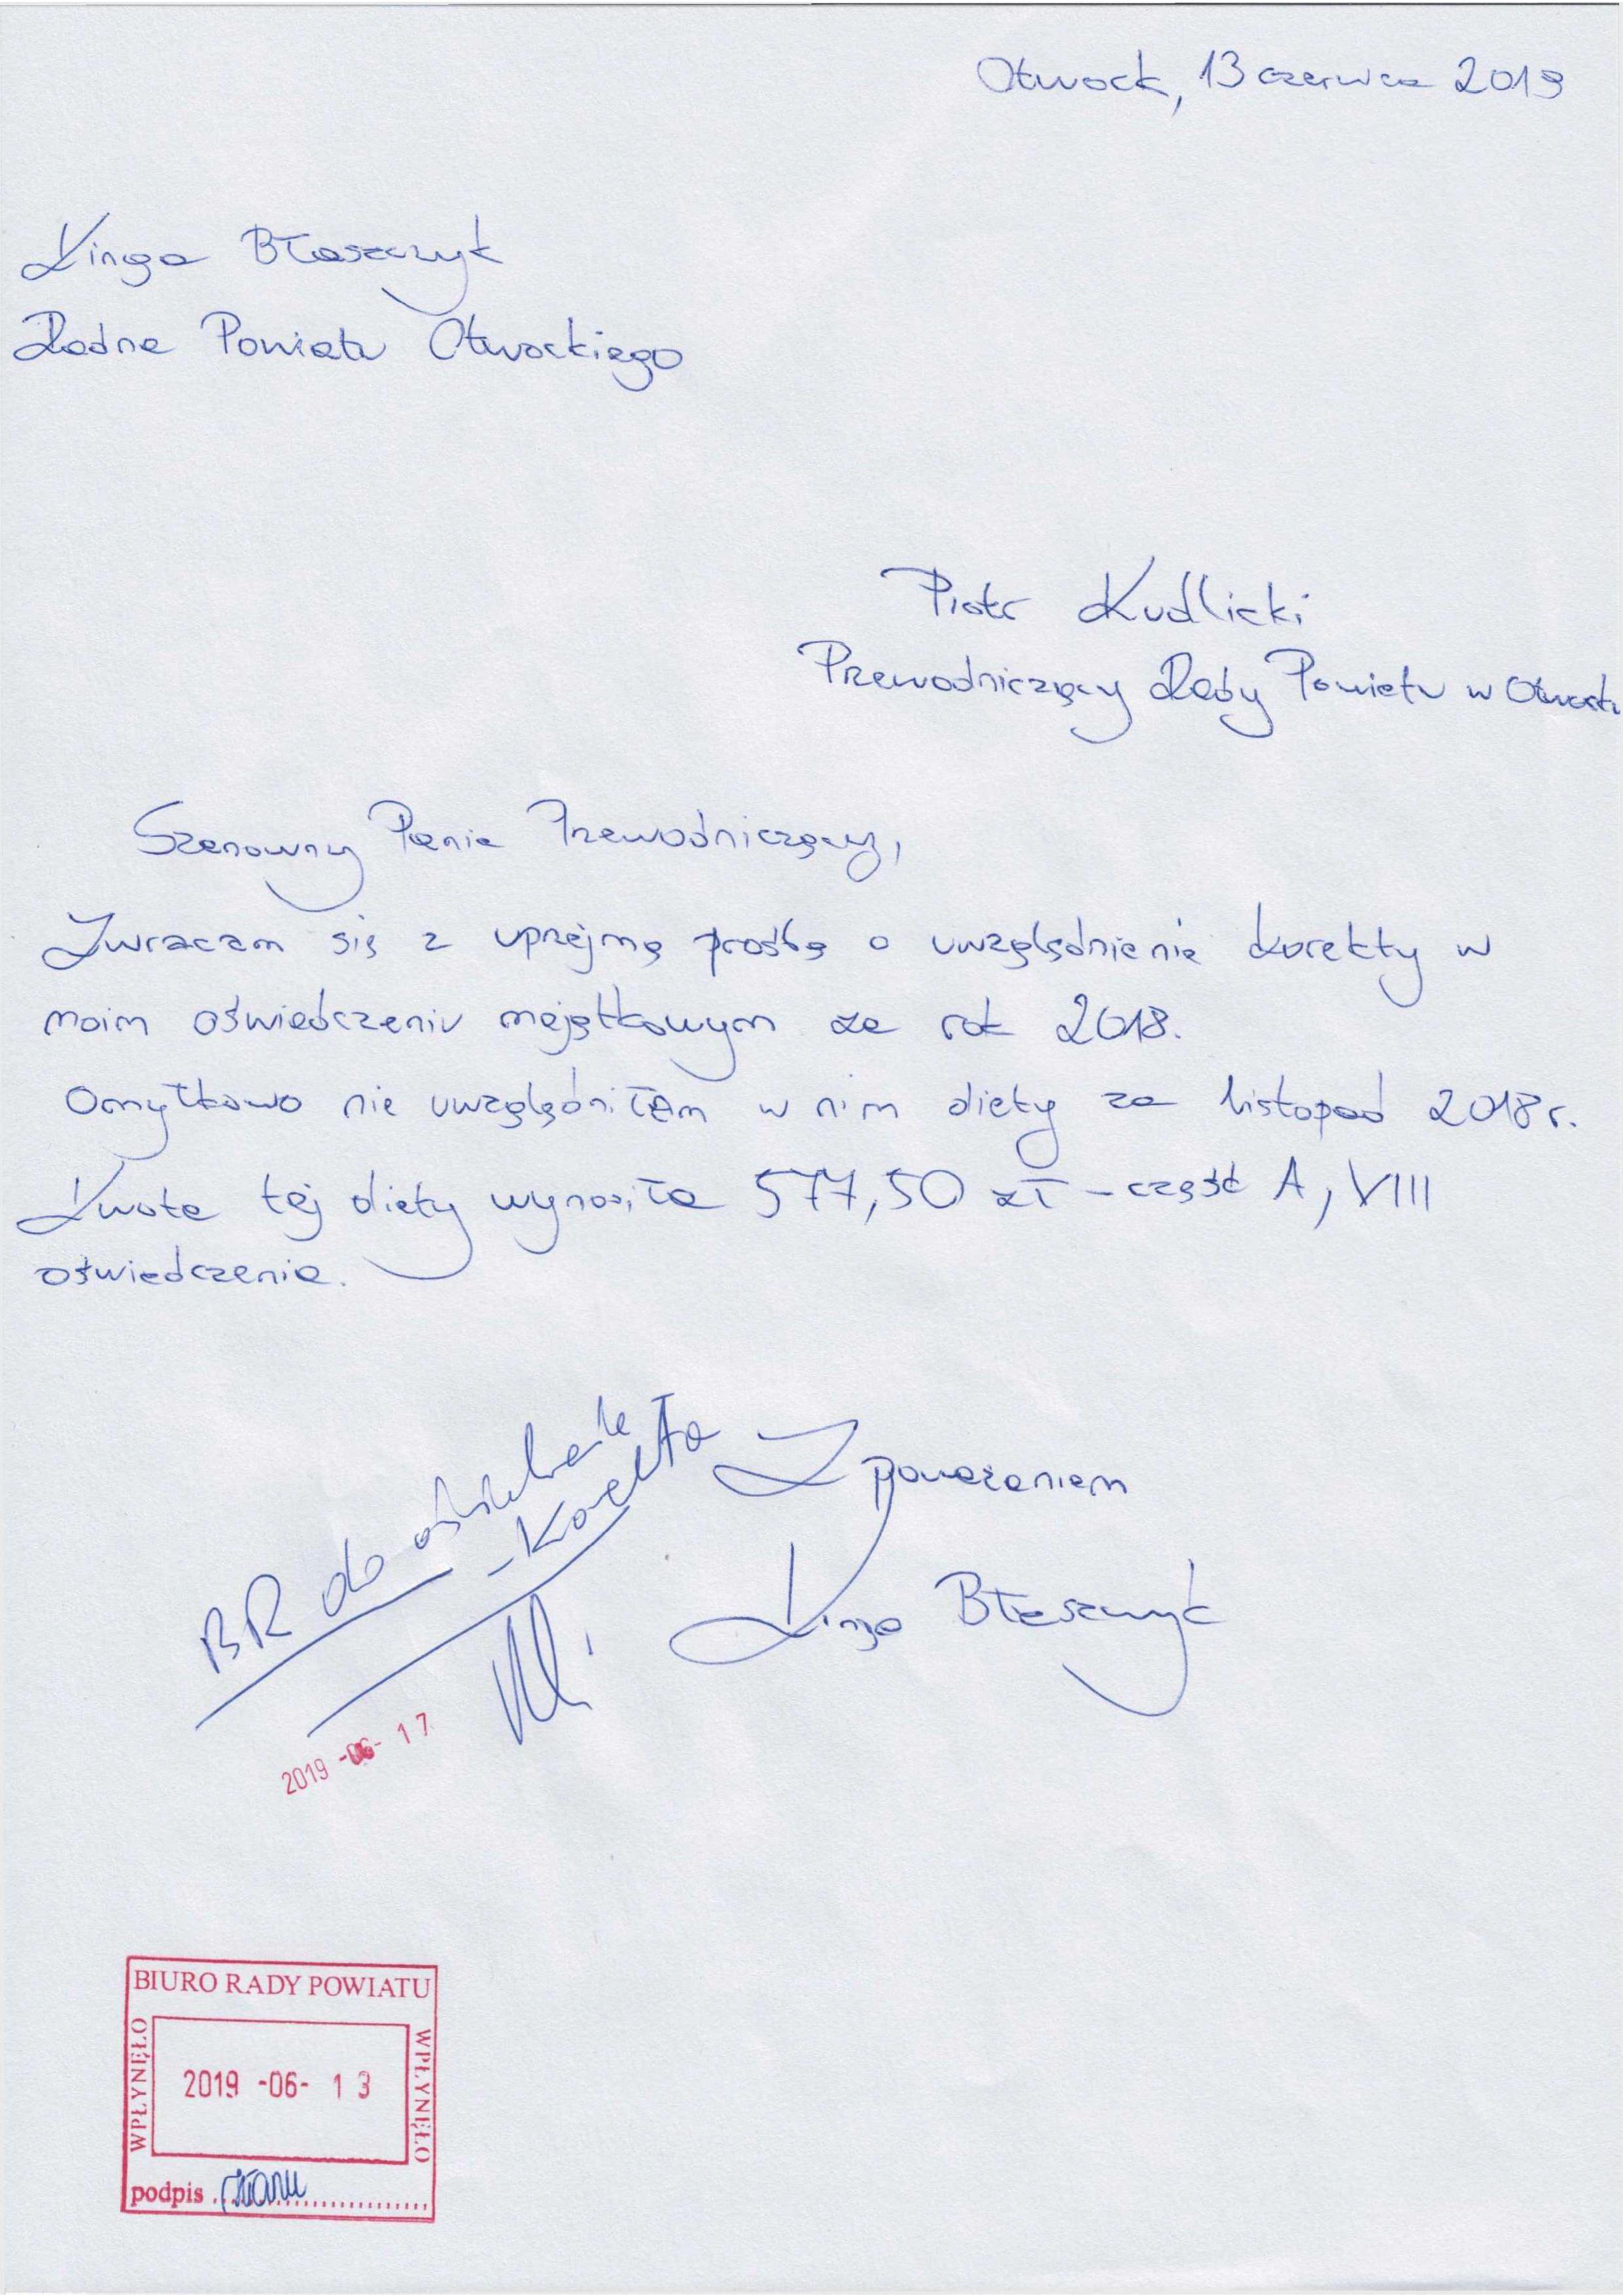 Otwock, 13 czerwca 2019
Kinga Błaszczyk
Radna Powiatu Otwockiego
Piotr Kudlicki
Przewodniczący Rady Powiatu w Otwocku
Szanowny Panie Przewodniczący,
Zwracam się z uprzejmą prośbą o uwzględnienie korekty w
moim oświadczeniu majątkowym za rok 2018.
Omyłkowo nie uwzględniłam w nim diety za listopad 2018 r.
Kwota tej diety wynosiła 577,50 zł - część A, VIII
oświadczenia.
Z poważaniem
Kinga Błaszczyk
BR do
- Korekta
2019 -06- 17
BIURO RADY POWIATU
WPŁYNĘŁO
2019 -06- 13
WPŁYNĘŁO
podpis